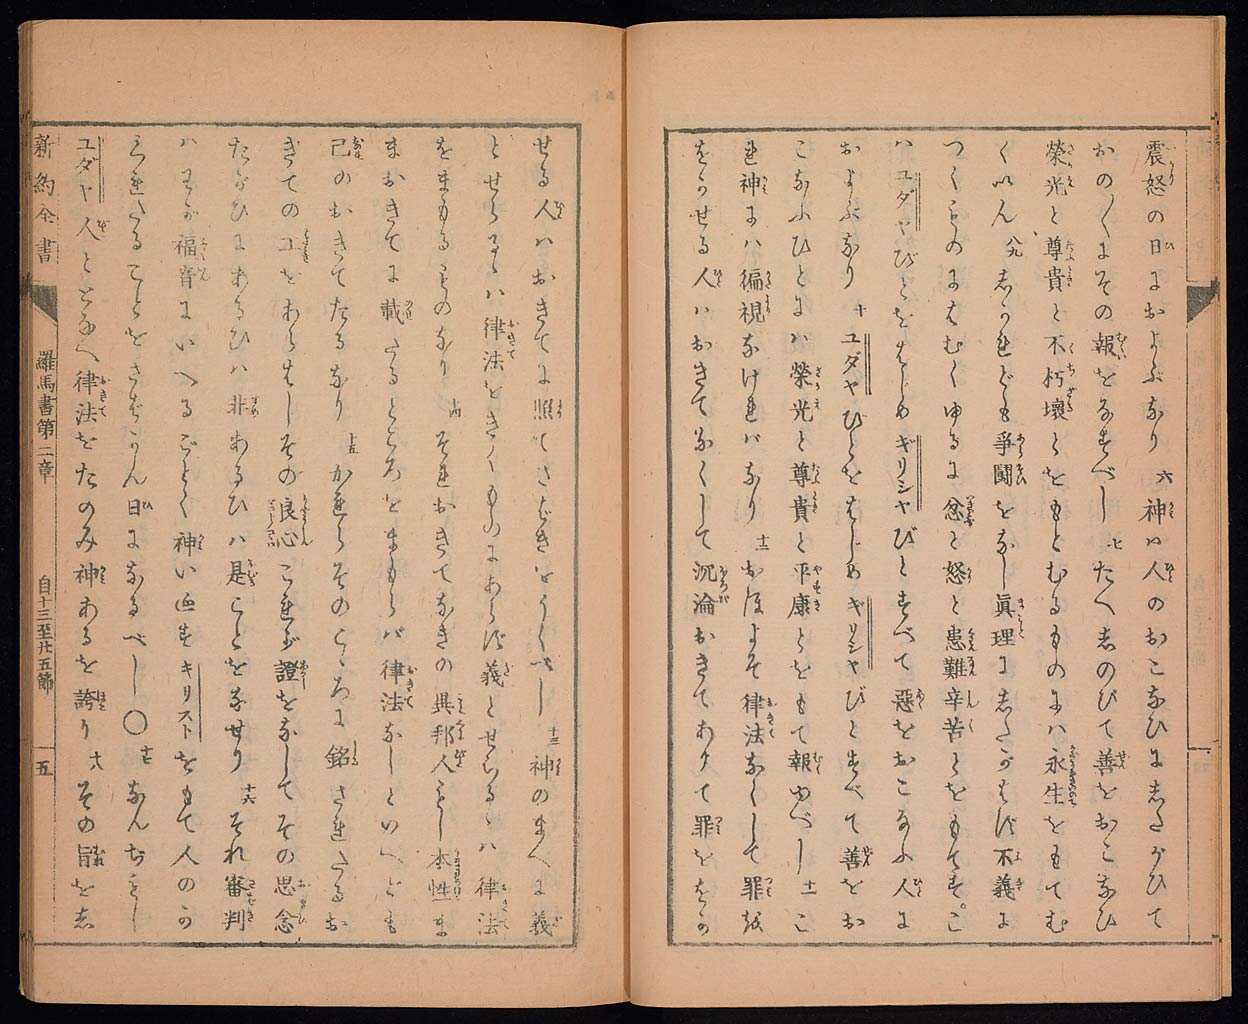 震怒の日におよぶなり 六 神ハ人のおこなひにしたがひて
おの〱にその報をなすべし 七 たへしのびて善をおこなひ
榮光と尊貴と不朽壞とをもとむるものにハ永生をもてむ
くいん 八九 しかれども爭鬪をなし眞理にしたがはず不義に
つくものにはむくゆるに忿と怒と患難辛苦とをもてす。こ
ハユダヤびとをはじめギリシヤびとすべて惡をおこなふ人に
およぶなり 十 ユダヤびとをはじめギリシヤびとすべて善をお
こなふひとにハ榮光と尊貴と平康とをもて報ゆべし 十一 こ
れ神にハ徧視なけれバなり 十二 おほよそ律法なくして罪を
をかせる人ハおきてなくして沉淪おきてありて罪ををか
せる人ハおきてに照てさばきをうくべし 十三 神のまへに義
とせらるゝハ律法をきくものにあらず義とせらるゝハ律法
をまもるものなり 十四 それおきてなきの異邦人もし本性のま
まおきてに載たるところをまもらバ律法なしといへども
己のおきてたるなり 十五 かれらそのこゝろに銘されたるお
きての工をあらはしその良心これが證をなしてその思念
たがひにあるひハ非あるひハ是ことをなせり 十六 それ審判
ハわが福音にいへるごとく神い𛀁すキリストをもて人のか
くれたることをさばかん日になるべし〇 十七 なんぢもし
ユダヤ人ととなへ律法をたのみ神あるを誇り 十八 その旨をし
新約全書
羅馬書第二章
自十三至廿五節
五